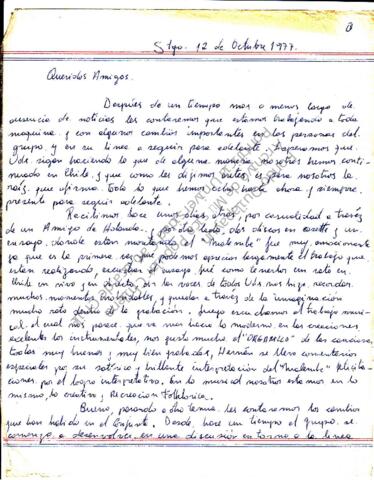 Stgo. 12 de Octubre 1977.
Queridos Amigos.
Después de un tiempo mas o menos largo de
ausencia de noticias les contaremos que estamos trabajando a toda
maquina y con algunos cambios importantes en las personas del
grupo y en su linea a seguir para adelante. Esperemos que
Uds sigan haciendo lo que de alguna manera nosotros hemos conti-
nuado en Chile y que como les dijimos antes es para nosotros la
raíz que afirma todo lo que hemos hecho hasta ahora y siempre
presente para seguir adelante.
Recibimos hace unos dias atras, por casualidad a través
de un Amigo de Holanda, y por otro lado, dos discos en casette y un
ensayo, donde estan montando el "Malembe" fue muy emocionante
ya que es la primera vez que podemos apreciar largamente el trabajo que
estan realizando, escuchar el ensayo fué como tenerlos un rato en
Chile en vivo y en directo, oir las voces de todos Uds nos hizo recordar
muchos momentos inolvidables, y quedar a través de la imaginación
mucho rato dentro de la grabación. Luego escuchamos el trabajo musi-
cal, el cual nos parece que va mas hacia lo moderno en las creaciones
excelentes los instrumentales, nos gusto mucho el de las canciones
todas muy buenas y muy bien grabadas, Hernán se lleva comentarios
especiales por su sobria y brillante interpretación del "Malembe" felicita-
ciones, por el logro interpretativo. En lo musical nosotros estamos en lo
mismo, lo creativo y Recreación Folklórica.
Bueno, pasando a otro tema les contaremos los cambios
que han habido en el Conjunto. Desde hace un tiempo el grupo se
comenzo a desenvolver en una discusión en torno a la linea